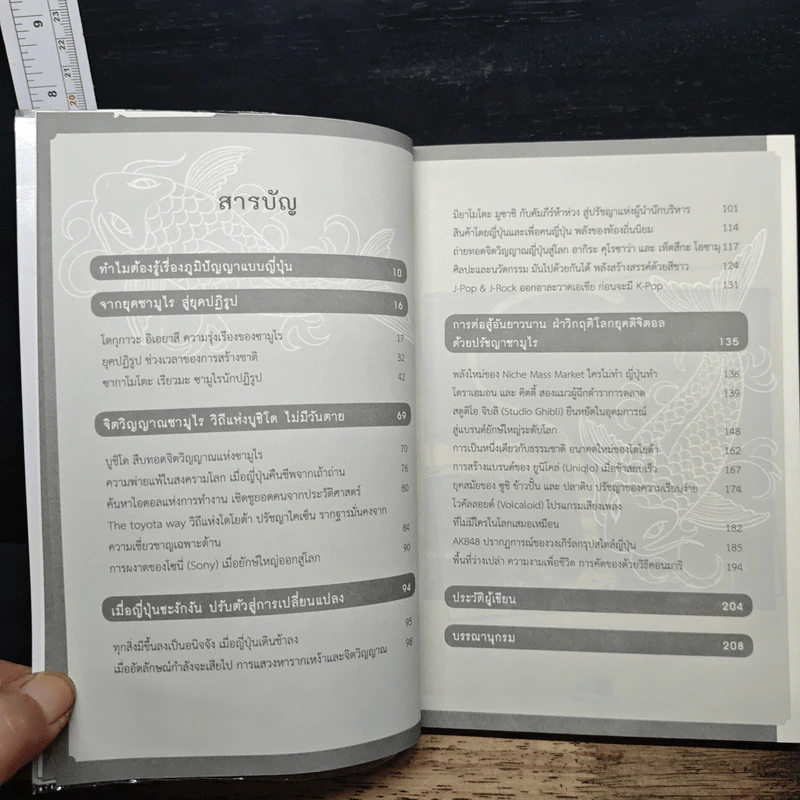 9
8
23
22
21
20
สารบัญ
ทำไมต้องรู้เรื่องภูมิปัญญาแบบญี่ปุ่น 10
จากยุคซามูไร สู่ยุคปฏิรูป 16
โตกุกาวะ อิเอยาสึ ความรุ่งเรืองของซามูไร 17
ยุคปฏิรูป ช่วงเวลาของการสร้างชาติ 32
ซากาโมโตะ เรียวมะ ซามูไรนักปฏิรูป 42
จิตวิญญาณซามูไร วิถีแห่งบูชิโด ไม่มีวันตาย 69
บูชิโด สืบทอดจิตวิญญาณแห่งซามูไร 70
ความพ่ายแพ้ในสงครามโลก เมื่อญี่ปุ่นคืนชีพจากเถ้าถ่าน 76
ค้นหาไอดอลแห่งการทำงาน เชิดชูยอดคนจากประวัติศาสตร์ 80
The toyota way วิถีแห่งโตโยต้า ปรัชญาไคเซ็น รากฐานมั่นคงจาก
ความเชี่ยวชาญเฉพาะด้าน 84
การผงาดของโซนี่ (Sony) เมื่อยักษ์ใหญ่ออกสู่โลก 90
เมื่อญี่ปุ่นชะงักงัน ปรับตัวสู่การเปลี่ยนแปลง 94
ทุกสิ่งมีขึ้นลงเป็นอนิจจัง เมื่อญี่ปุ่นเดินช้าลง 95
เมื่ออัตลักษณ์กำลังจะเสียไป การแสวงหารากเหง้าและจิตวิญญาณ 98
มิยาโมโตะ มูซาชิ กับคัมภีร์ห้าห่วง สู่ปรัชญาแห่งผู้นำนักบริหาร 101
สินค้าโดยญี่ปุ่นและเพื่อคนญี่ปุ่น พลังของท้องถิ่นนิยม 114
ถ่ายทอดจิตวิญญาณญี่ปุ่นสู่โลก อากิระ คุโรซาว่า และ เท็ตสึกะ โอซามุ 117
ศิลปะและนวัตกรรม มันไปด้วยกันได้ พลังสร้างสรรค์ด้วยสีขาว 124
J-Pop & J-Rock ออกอาละวาดเอเชีย ก่อนจะมี K-Pop 131
การต่อสู้อันยาวนาน ฝ่าวิกฤติโลกยุคดิจิตอล
ด้วยปรัชญาซามูไร 135
พลังใหม่ของ Niche Mass Market ใครไม่ทำ ญี่ปุ่นทำ 136
โดราเอมอน และ คิตตี้ สองแมวผู้ฉีกตำราการตลาด 139
สตูดิโอ จิบลิ (Studio Ghibli) ยืนหยัดในอุดมการณ์
สู่แบรนด์ยักษ์ใหญ่ระดับโลก 148
การเป็นหนึ่งเดียวกับธรรมชาติ อนาคตใหม่ของโตโยต้า 162
การสร้างแบรนด์ของ ยูนิโคล่ (Uniqlo) เมื่อช้าสยบเร็ว 167
ยุคสมัยของ ซูชิ ข้าวปั้น และ ปลาดิบ ปรัชญาของความเรียบง่าย 174
โวคัลลอยด์ (Volcaloid) โปรแกรมเสียงเพลง
ที่ไม่มีใครในโลกเสมอเหมือน 182
AKB48 ปรากฏการณ์ของวงเกิร์ลกรุปสไตล์ญี่ปุ่น 185
พื้นที่ว่างเปล่า ความงามเพื่อชีวิต การคัดของด้วยวิธีคอนมาริ 194
ประวัติผู้เขียน 204
บรรณานุกรม 208